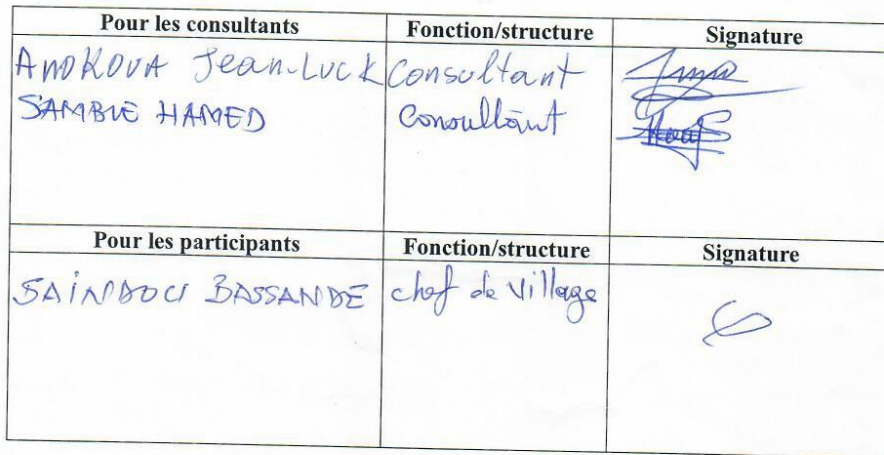 Pour les consultants Fonction/structure Signature
AMOKOUA Jean-LUCK Consultant
SAMBIE HAMED Consultant
Pour les participants Fonction/structure Signature
SAINDOU BASSANDE chef de Village